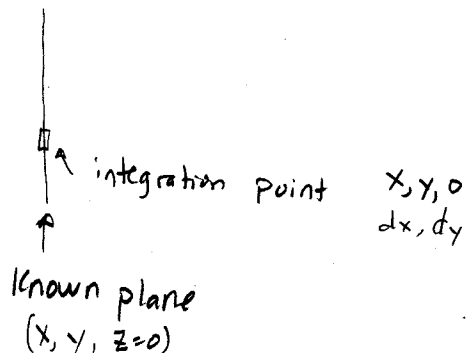 integration point x, y, 0
dx, dy
Known plane
(x, y, z=0)